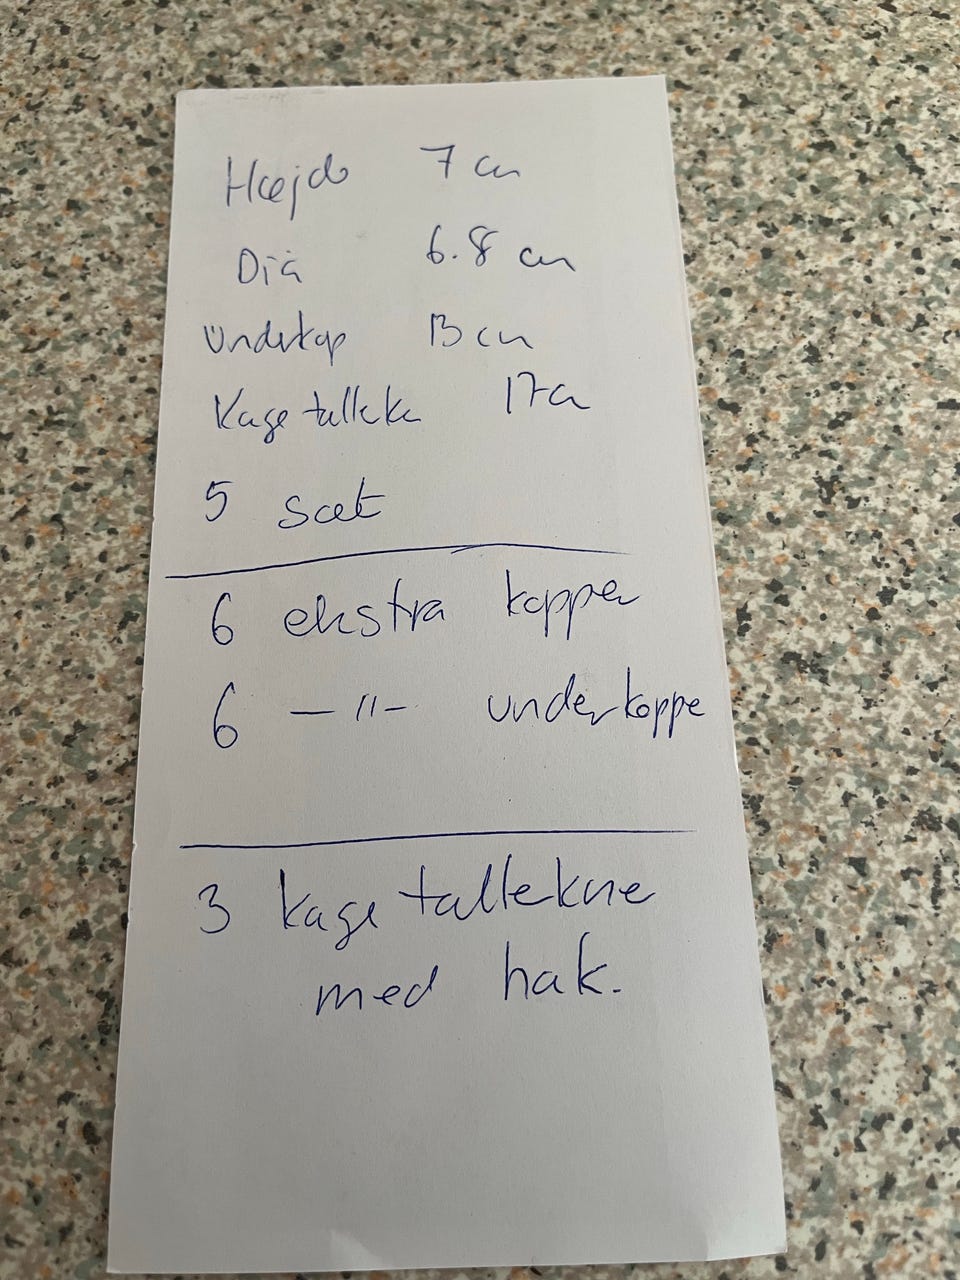 Højde 7 cm
Dia 6.8 cm
Underkop 13 cm
Kagetallerken 17 cm
5 sæt
6 ekstra kopper
6 —"— underkoppe
3 kagetallekne
med hak.